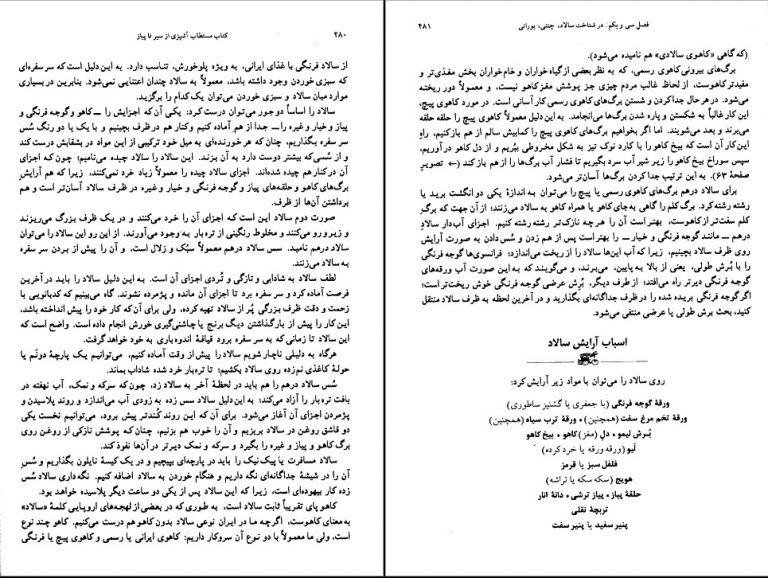 ۴۸۰ کتاب مستطاب آشپزی از سیر تا پیاز
از سالاد فرنگی با غذای ایرانی، به ویژه پلوخورش، تناسب دارد. به این دلیل است که سر سفره‌ای
که سبزی خوردن وجود داشته باشد، معمولاً به سالاد چندان اعتنایی نمی‌شود. بنابرین در بسیاری
موارد میان سالاد و سبزی خوردن می‌توان یک کدام را برگزید.
سالاد را اساساً دو جور می‌توان درست کرد: یکی آن که اجزایش را ــ کاهو و گوجه فرنگی و
پیاز و خیار و غیره را ــ جدا از هم آماده کنیم وکنار هم در ظرف بچینیم و با یک یا دو رنگ سُس
سر سفره بگذاریم، چنان که هر خورنده‌ای به میل خود ترکیبی از این مواد در بشقابش درست کند
و از سُسی که بیشتر دوست دارد به آن بزند. این سالاد را سالاد چیده می‌نامیم؛ چون که اجزای
آن در کنار هم چیده شده‌اند. اجزای سالاد چیده را معمولاً زیاد خرد نمی‌کنند، زیرا که هم آرایشِ
برگ‌های کاهو و حلقه‌های پیاز و گوجه فرنگی و خیار و غیره در ظرف سالاد آسان‌تر است و هم
برداشتن آن‌ها از ظرف.
صورت دوم سالاد این است که اجزای آن را خرد می‌کنند و در یک ظرف بزرگ می‌ریزند
و زیر و رو می‌کنند و مخلوط رنگینی از تره‌بار به وجود می‌آورند. از این رو این سالاد را می‌توان
سالاد درهم نامید. سس سالاد درهم معمولاً سبُک و زلال است، و آن را پیش از بردن سر سفره
به سالاد می‌زنند.
لطف سالاد به شادابی و تازگی و تُردی اجزای آن است. به این دلیل سالاد را باید در آخرین
فرصت آماده کرد و سر سفره برد تا اجزای آن مانده و پژمرده نشوند. گاه می‌بینیم که کدبانویی با
زحمت و دقت ظرف بزرگی پُر از سالاد تهیه کرده، ولی برای آن که کار خود را پیش انداخته باشد،
این کار را پیش از بارگذاشتن دیگ برنج یا چاشنی‌گیری خورش انجام داده است. واضح است که
این سالاد تا زمانی که به سر سفره برود قیافهٔ اندوه‌باری به خود خواهد گرفت.
هرگاه به دلیلی ناچار شویم سالاد را پیش از وقت آماده کنیم، می‌توانیم یک پارچهٔ دوتّم یا
حولهٔ کاغذی نم‌زده روی سالاد بکشیم؛ تا تره‌بار خرد شده شاداب بماند.
سُس سالاد درهم را هم باید در لحظهٔ آخر به سالاد زد، چون که سرکه و نمک، آب نهفته در
بافت تره‌بار را آزاد می‌کند؛ به این دلیل سالاد سس زده به زودی آب می‌اندازد و روند پلاسیدن و
پژمردن اجزای آن آغاز می‌شود. برای آن که این روند کُندتر پیش برود، می‌توانیم نخست یکی
دو قاشق روغن در سالاد بریزیم و آن را خوب هم بزنیم، چنان که پوشش نازکی از روغن روی
برگ کاهو و پیاز و غیره را بگیرد و سرکه و نمک دیرتر در آن‌ها نفوذ کند.
سالاد مسافرت یا پیک‌نیک را باید در پارچه‌ای بپیچیم و در یک کیسهٔ نایلون بگذاریم و سُسِ
آن را در شیشهٔ جداگانه‌ای نگه داریم و هنگام خوردن به سالاد اضافه کنیم. نگه‌داری سالاد سُس
زده کار بیهوده‌ای است، زیرا که این سالاد پس از یکی دو ساعت دیگر پلاسیده خواهد بود.
کاهو پای تقریباً ثابت سالاد است، به طوری که در بعضی از لهجه‌های اروپایی کلمهٔ «سالاد»
به معنای کاهوست، اگرچه ما در ایران نوعی سالاد بدون کاهو هم درست می‌کنیم. کاهو چند نوع
است، ولی ما معمولاً با دو نوع آن سروکار داریم: کاهوی ایرانی یا رسمی و کاهوی پیچ یا فرنگی
فصل سی و یکم: در شناخت سالاد، چتنی، بورانی ۴۸۱
(که گاهی «کاهوی سالادی» هم نامیده می‌شود).
برگ‌های بیرونی کاهوی رسمی، که به نظر بعضی از گیاه‌خواران و خام‌خواران بخش مغذی‌تر و
مفیدتر کاهوست، از لحاظ غالب مردم چیزی جز پوشش مغز کاهو نیست، و معمولاً دور ریخته
می‌شود. در هر حال جدا کردن و شستن برگ‌های کاهوی رسمی کار آسانی است. در مورد کاهوی پیچ،
این کار غالباً به شکستن و پاره شدن برگ‌ها می‌انجامد. به این دلیل معمولاً کاهوی پیچ را حلقه حلقه
می‌برند و بعد می‌شویند. اما اگر بخواهیم برگ‌های کاهوی پیچ را کمابیش سالم از هم باز کنیم، راهِ
این کار آن است که بیخ کاهو را با کارد نوک تیز به شکل مخروطی ببُریم و از دل کاهو درآوریم،
سپس سوراخ بیخ کاهو را زیر شیر آب سرد بگیریم تا فشار آب برگ‌ها را از هم باز کند (← تصویر
صفحهٔ ۶۳). به این ترتیب جدا کردن برگ‌ها آسان‌تر می‌شود.
برای سالاد درهم برگ‌های کاهوی رسمی یا پیچ را می‌توان به اندازهٔ یکی دو انگشت برید یا
رشته رشته کرد. برگ کلم را گاهی به‌جای کاهو یا همراه کاهو به سالاد می‌زنند؛ از آن جهت که برگِ
کلم سفت‌تر از کاهوست، بهتر است آن را هرچه نازک‌تر رشته رشته کنیم. اجزای آب‌دار سالادِ
درهم ــ مانند گوجه فرنگی و خیار ــ را بهتر است پس از هم زدن و سُس دادن به صورت آرایش
روی ظرف سالاد بچینیم، زیرا که آب این‌ها سالاد را از ریخت می‌اندازد؛ فرانسوی‌ها گوجه فرنگی
را با بُرش طولی، یعنی از بالا به پایین، می‌برند، و می‌گویند که به این صورت آب ورقه‌های
گوجه فرنگی دیرتر راه می‌افتد؛ از طرف دیگر، بُرِش عرضی گوجه فرنگی خوش ریخت‌تر است؛
اگر گوجه فرنگی بریده شده را در ظرف جداگانه‌ای بگذارید و در آخرین لحظه به ظرف سالاد منتقل
کنید، بحث برش طولی یا عرضی منتفی می‌شود.
اسباب آرایش سالاد
روی سالاد را می‌توان با مواد زیر آرایش کرد:
ورقهٔ گوجه فرنگی (با جعفری یا گشنیز ساطوری)
ورقهٔ تخم مرغ سفت (همچنین) • ورقهٔ ترب سیاه (همچنین)
بُرش لیمو • دلِ (مغز) کاهو • بیخ کاهو
لبو (ورقه ورقه یا خرد کرده)
فلفل سبز یا قرمز
هویج (سکه سکه یا تراشه)
حلقهٔ پیاز • پیاز ترشی • دانهٔ انار
تربچهٔ نقلی
پنیر سفید یا پنیر سفت